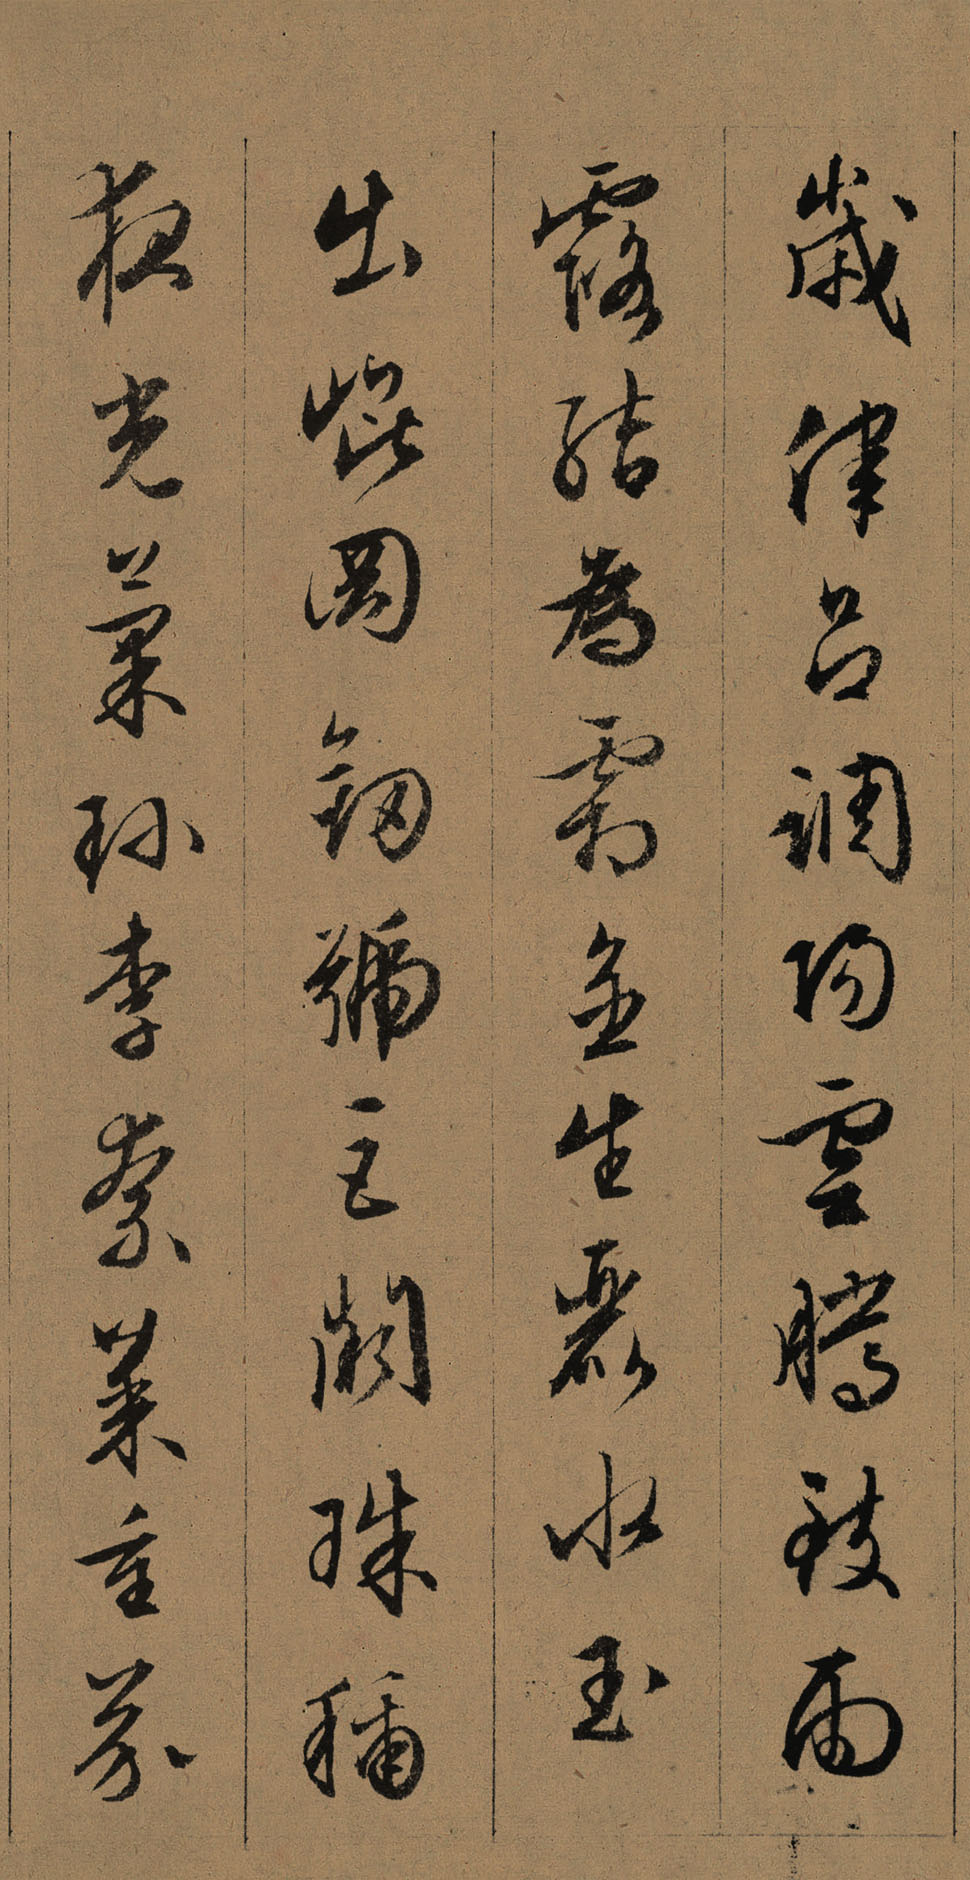 歲律呂調陽雲騰致雨
露結為霜金生麗水玉
出崐岡劒號巨闕珠稱
夜光菓珍李柰菜重芥